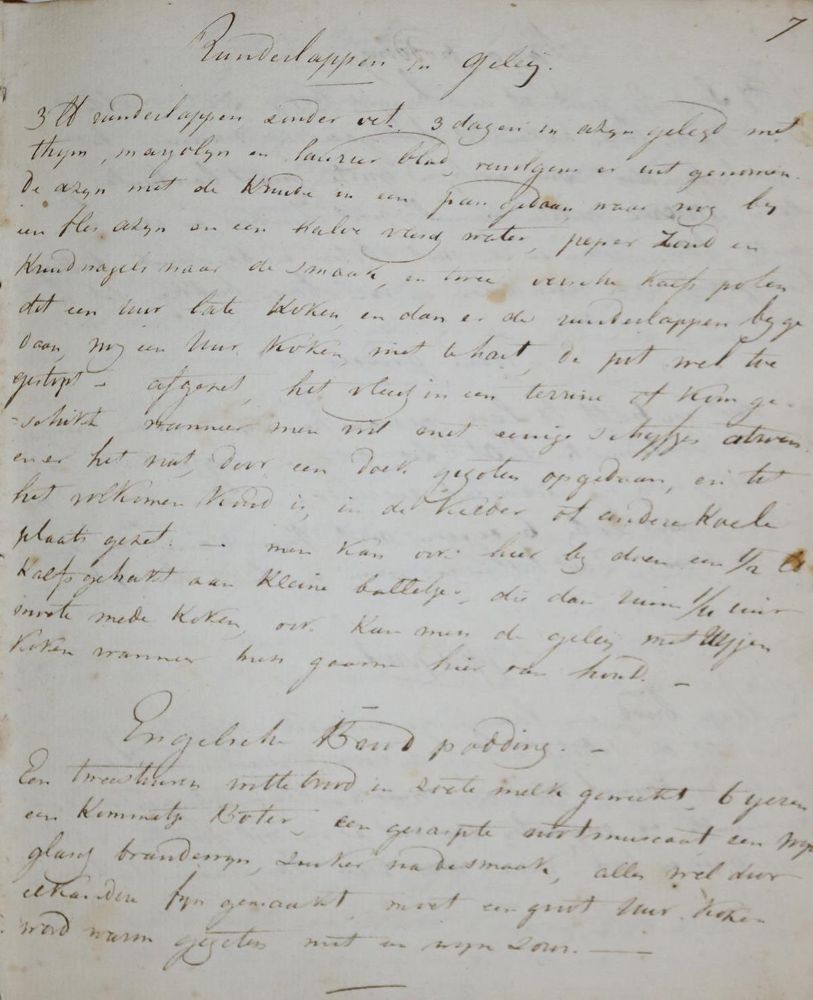 7
Runderlappen in geleij.
3 ℔ runderlappen zonder vet. 3 dagen in azyn gelegd met
thym, marjolyn en laurier blad, vervolgens er uit genomen.
De azyn met de Kruide in een pan gedaan waar nog by
een fles azyn en een halve versch water, peper Zout en
Kruidnagels naar de smaak, en twee versche Kalfs poten
dit een uur late Koken, en dan er de runderlappen by ge
daan, nog een uur Koken, niet te hart, de pot wel toe
gestopt – afgezet, het vleesch in een terrine of Kom ge-
-schikt wanneer men wil met eenige schyfjes citroen
en er het nat, door een doek gegoten opgedaan, en tot
het volkomen Koud is, in de Kelder of andere Koele
plaats gezet. — men kan ook hier by doen een 1/2 ℔
Kalfsgehakt aan Kleine balletjes, die dan ruim 1/4 uur
moete mede Koken, ook Kan men de geleij met Uijen
Koken wanneer men gaarne hier van houd. –
Engelsche Brood podding. –
Een tweestuivers witte brood in zoete melk geweekt, 6 ijeren
een Kommetje Boter, een geraspte nootmuscaat een wyn
glasj brandewyn, zuiker na de smaak, alles wel door
elkandere fyn gemaakt, moet een groot uur Koken
word warm gegeten met een wyn zous. —